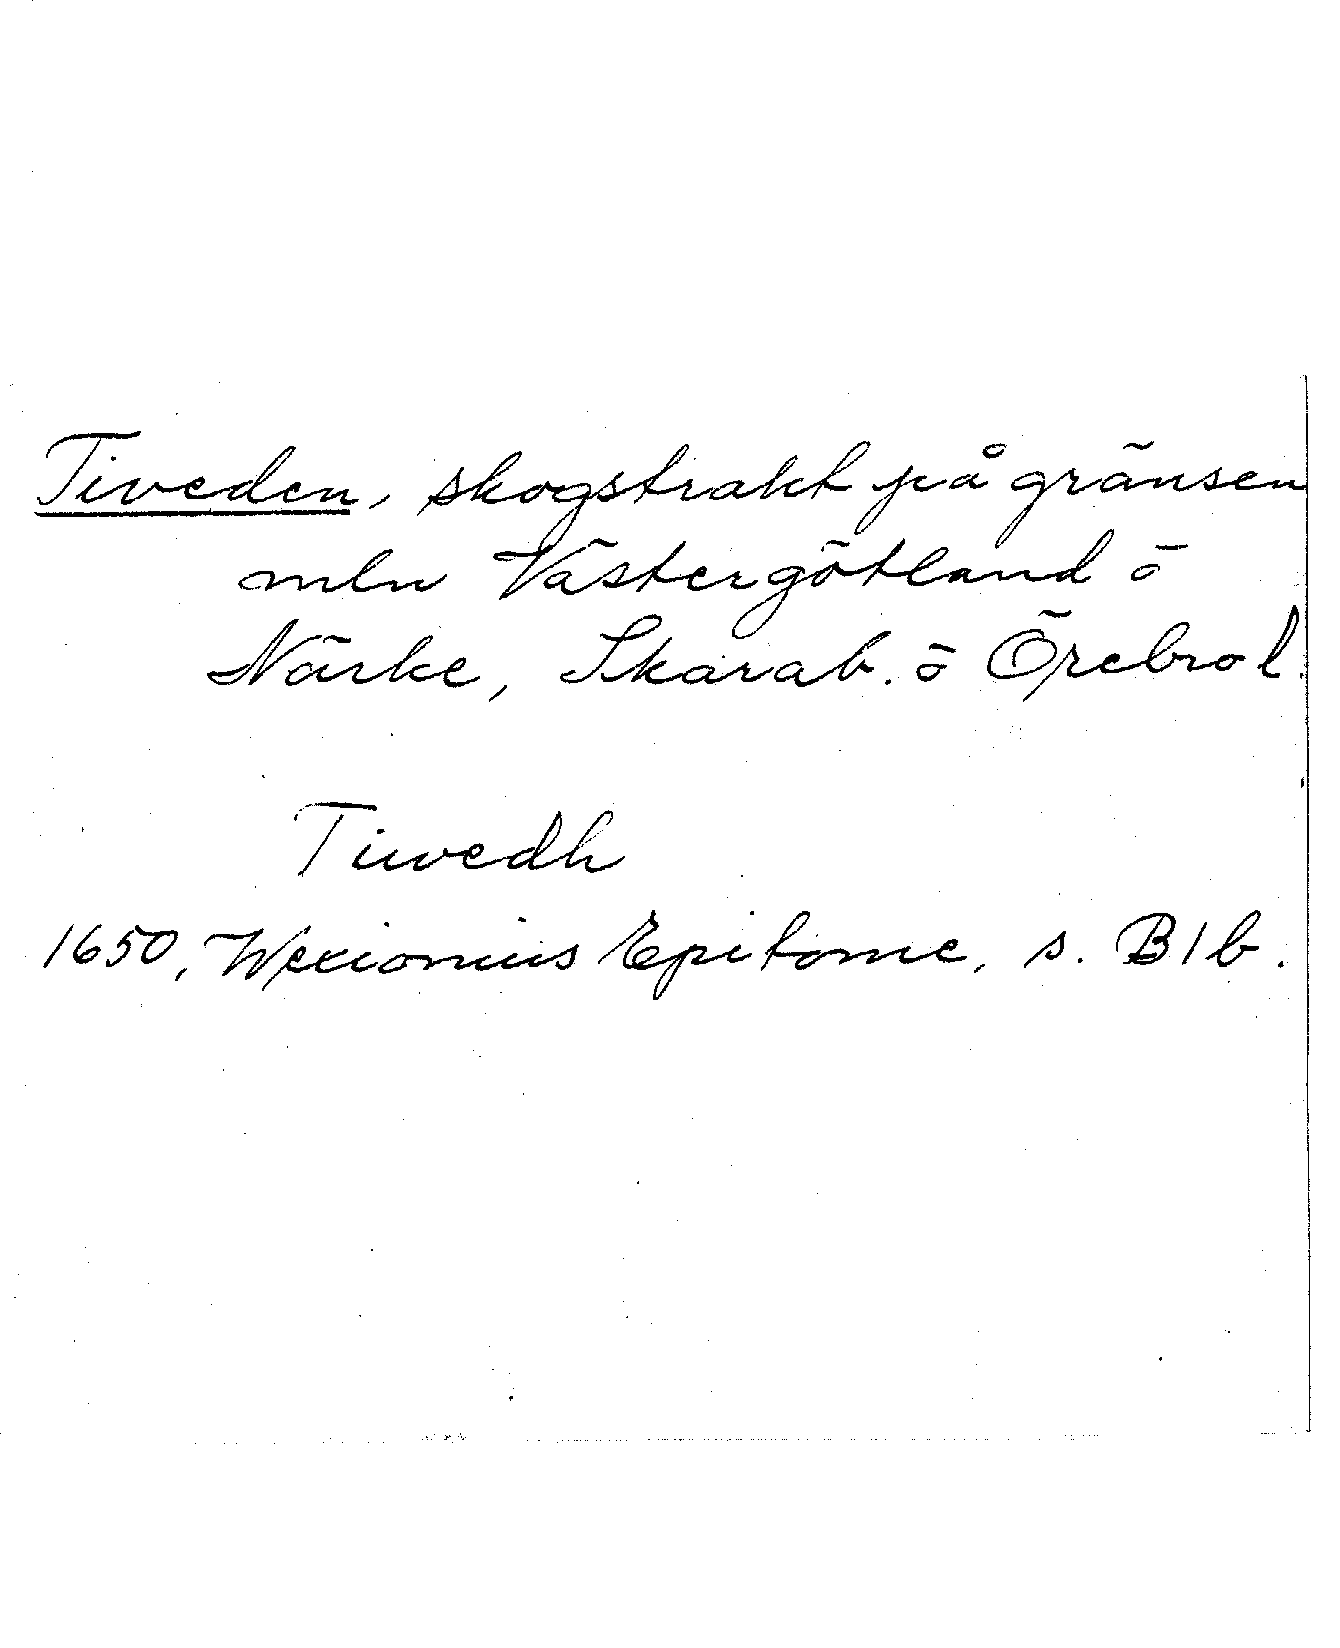 Tiveden, skogstrakt på gränsen
mln Västergötland o
Närke, Skarab. o Örebro l.
Tiwedh
1650, Wexionius Epitome, s. B1b.